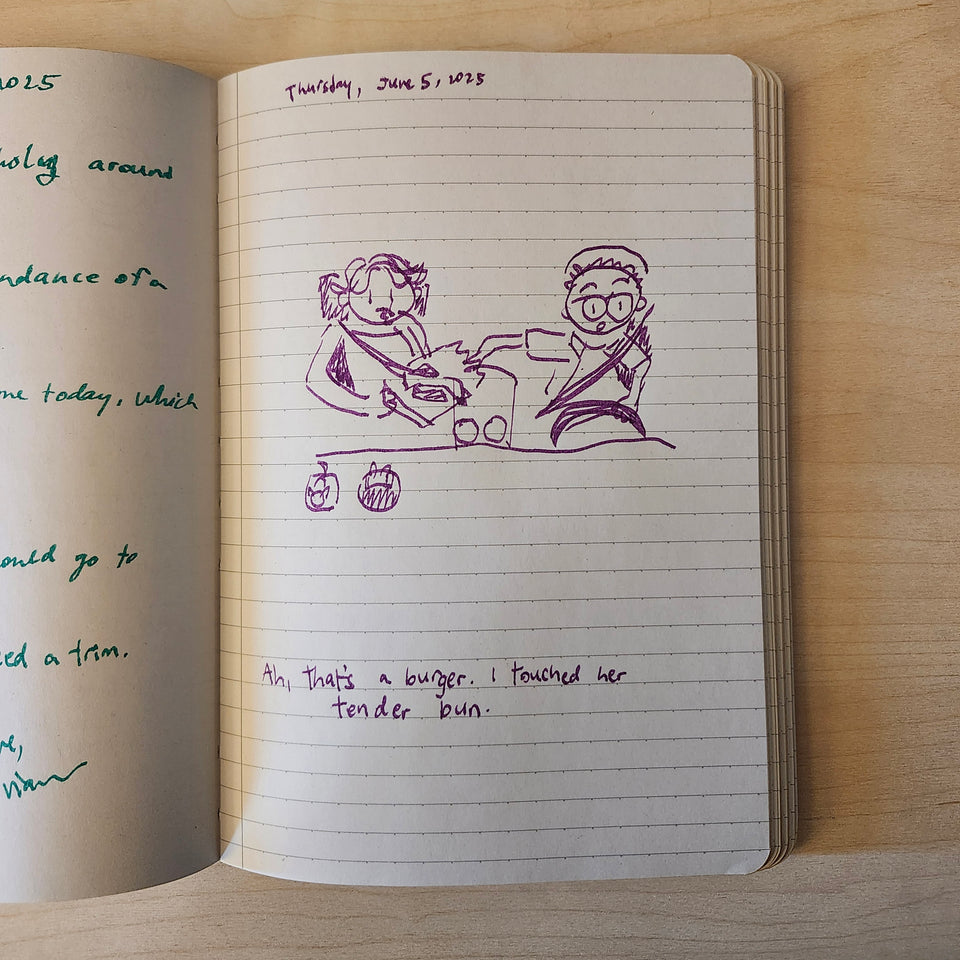 2025
around
ndance of a
me today, which
ould go to
ed a trim.
Thursday, June 5, 2025
Ah, that's a burger. I touched her
tender bun.